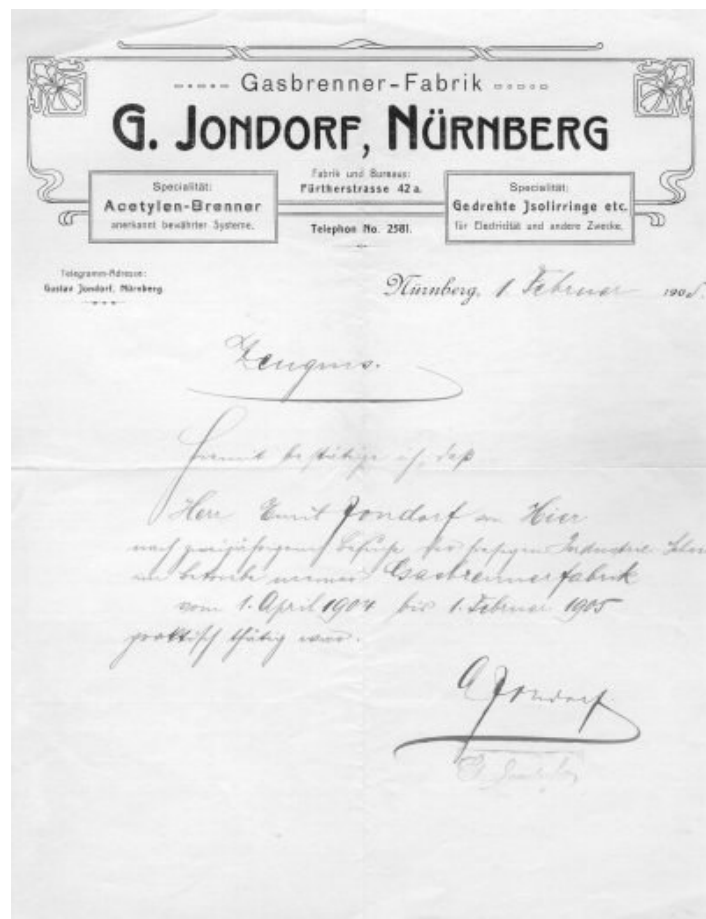 Gasbrenner-Fabrik
G. JONDORF, NÜRNBERG
Specialität:
Acetylen-Brenner
anerkannt bewährter Systeme.
Fabrik und Bureaus:
Fürtherstrasse 42 a.
Telephon No. 2581.
Specialität:
Gedrehte Jsolirringe etc.
für Electricität und andere Zwecke.
Telegramm-Adresse:
Gustav Jondorf, Nürnberg
Nürnberg, 1. Februar 1905.
Zeugnis.
Hiermit bestätige ich, daß
Herr Emil Jondorf von Hier
nach zweijährigem Besuche der hiesigen Industrie
im Betriebe meiner Gasbrennerfabrik
vom 1. April 1904 bis 1. Februar 1905
praktisch thätig war.
G Jondorf.